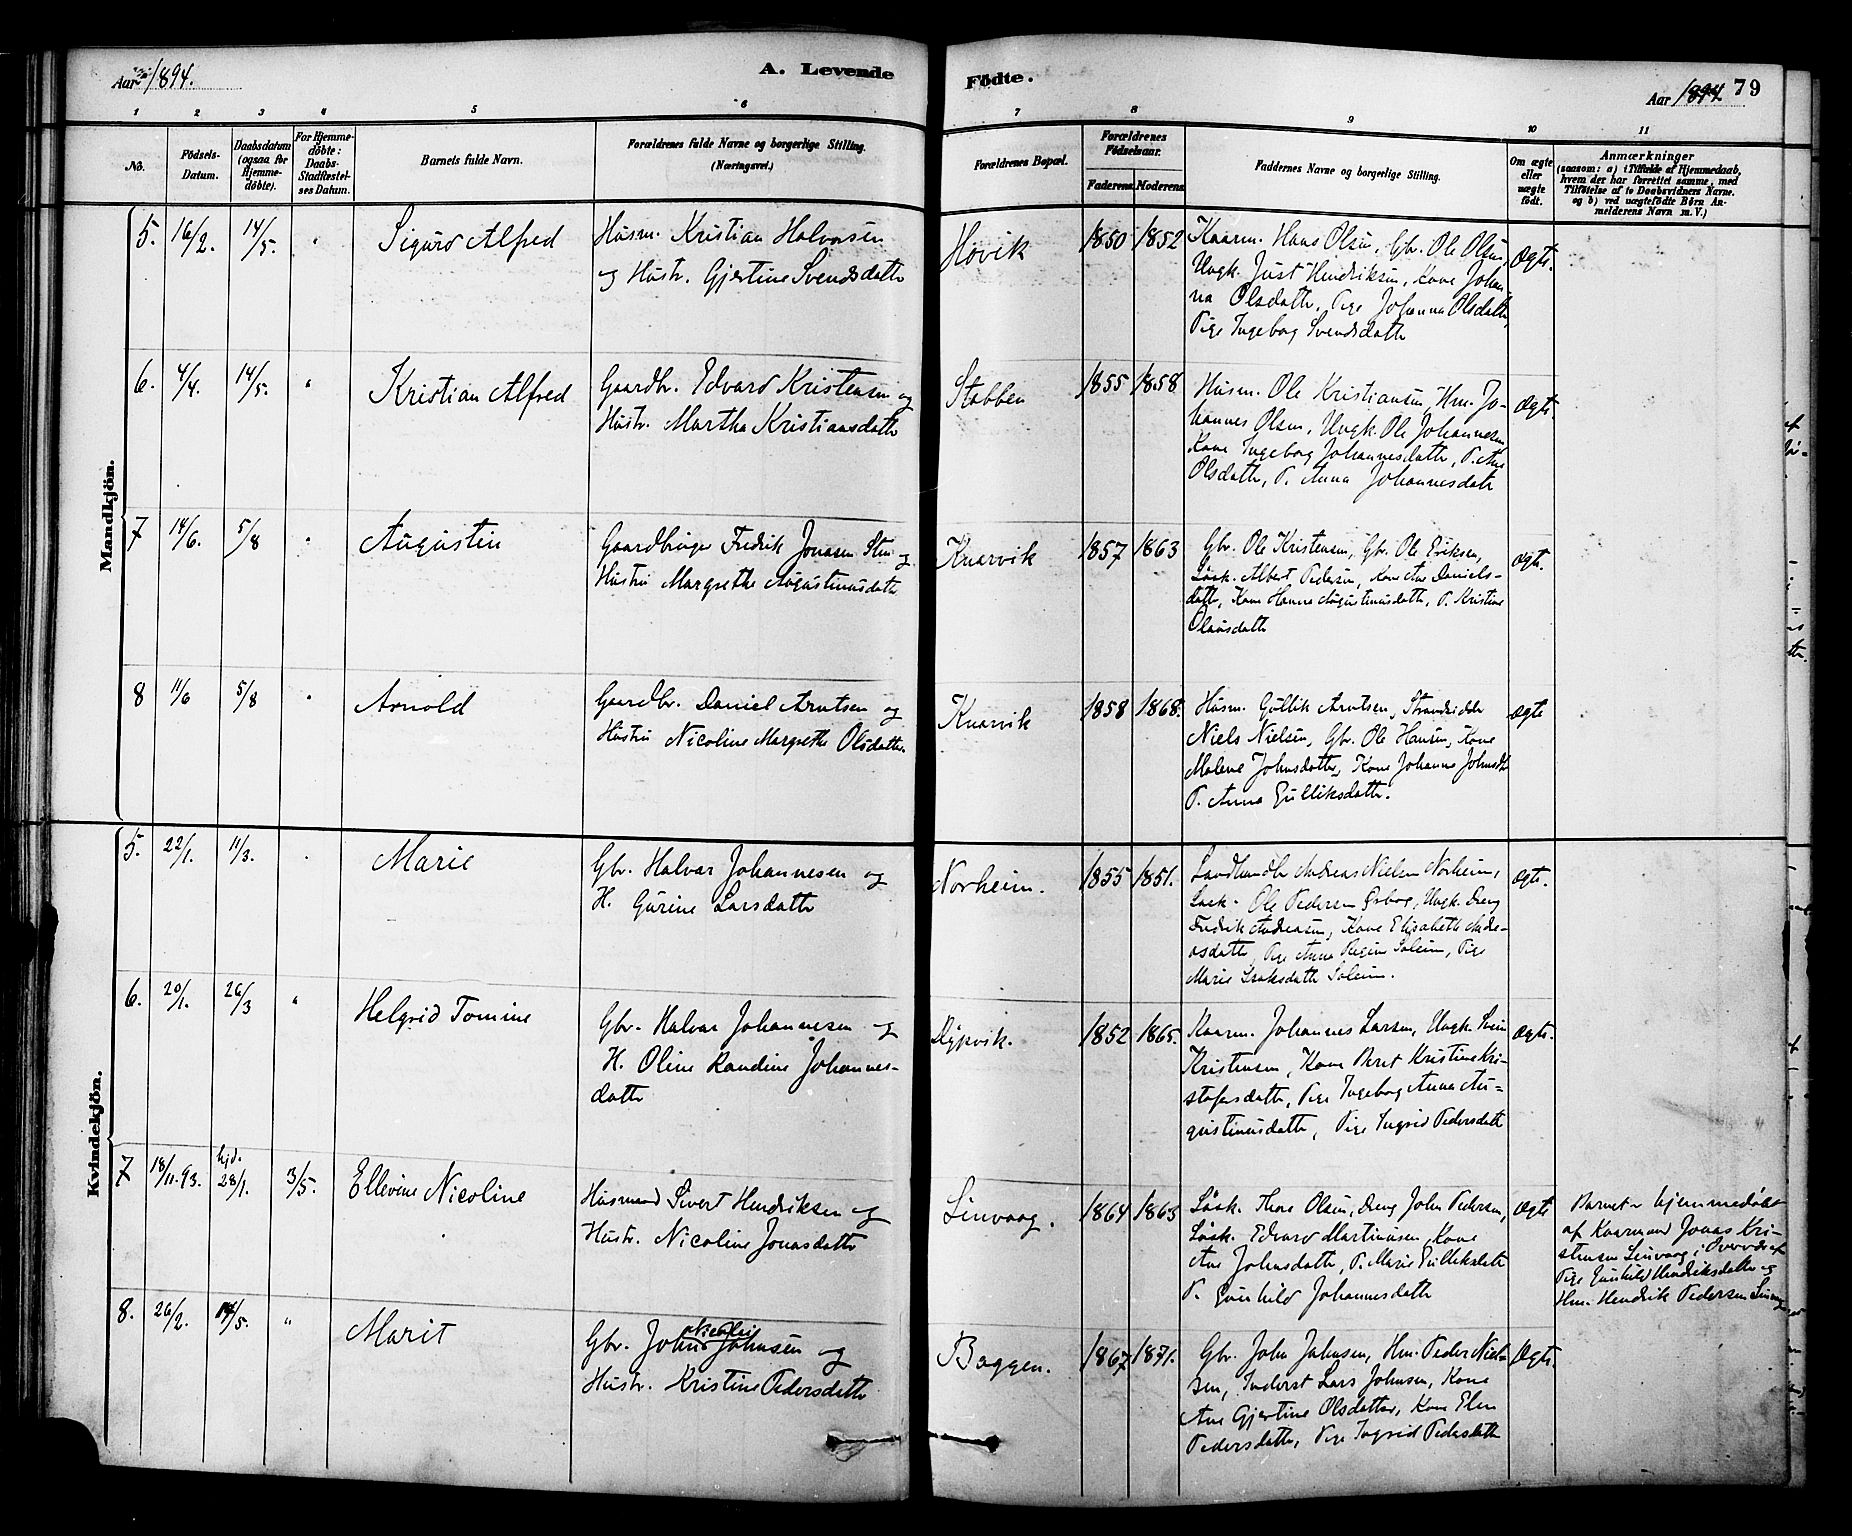 Aar 1894.
A. Levende
Födte.
Aar 1894. 79
1 2 3 4 5 6 7 8 9 10 11
No.
Födsels-
Datum.
Daabsdatum
(ogsaa for
Hjemme-
döbte).
For Hjemme-
döbte:
Daabs-
Stadfæstel-
ses Datum.
Barnets fulde Navn.
Forældrenes fulde Navne og borgerlige Stilling.
(Næringsvei.)
Forældrenes Bopæl.
Forældrenes
Födselsaar.
Faderens. Moderens.
Faddernes Navne og borgerlige Stilling.
Om ægte
eller
uægte
födt.
Anmærkninger
(saasom: a) i Tilfælde af Hjemmedaab,
hvem der har forrettet samme, med
Tilföielse af to Daabsvidners Navne.
og b) ved uægtefödte Börn An-
melderens Navn m. V.)
Mandkjön.
5. 16/2. 14/5. " Sigurd Alfred
Husm. Kristian Halvorsen
og Hustr. Gjertine Svendsdatter
Hovik 1850 1852
Kaarm. Hans Olsen, Gbr. Ole Olsen,
Ungk. Just Hendriksen, Kone Johan-
na Olsdatter, Pige Johanna Olsdatter,
Pige Ingeborg Svendsdatter
Ægte.
6. 4/4. 14/5. " Kristian Alfred
Gaardbr. Edvard Kristensen og
Hustr. Martha Kristiansdatter
Stabben 1855 1858
Husm. Ole Kristiansen, Hm. Jo-
hannes Olsen, Ungk. Ole Johannesen
Kone Ingeborg Johannesdatter, P. Ane
Olsdatter, P. Anna Johannesdatter
Ægte.
7 14/6. 5/8 " Augustin
Gaardbruger Fredrik Jonasen Sten og
Hustru Margrethe Augustinusdatter
Knarvik 1857 1863
Gbr. Ole Kristensen, Gbr. Ole Eriksen,
Løsk. Albert Pedersen, Kone Ane Daniels-
datter, Kone Hanna Augustinusdatter, P. Kristine
Olausdatter
ægte.
8 11/6 5/8 " Arnold
Gaardbr. Daniel Arntsen og
Hustru Nicoline Margrethe Olsdatter.
Knarvik 1858 1868.
Husm. Gullik Arntsen, Strandsidder
Niels Nielsen, Gbr. Ole Hansen, Kone
Malene Johnsdatter, Kone Johanna Johnsdtr
P. Anna Gulliksdatter.
ægte
Kvindekjön.
5. 22/1. 11/3. " Marie
Gbr. Halvar Johannesen og
H. Gurine Larsdatter
Norheim. 1855 1851.
Landhandler Andreas Nielsen Norheim,
Løsk. Ole Pedersen Ørbog, Ungk. Dreng
Fredrik Andreasen, Kone Elisabeth Andre-
asdatter, Pige Anna Regine Soleim, Pige
Marie Isaksdatter Soleim.
ægte.
6. 20/1. 26/3 " Helgrid Tomine
Gbr. Halvar Johannesen og
H. Oline Randine Johannes-
datter
Dypvik. 1852 1865.
Kaarm. Johannes Larsen, Ungk. Svein
Kristensen, Kone Beret Kristine Kri-
stofersdatter, Pige Ingeborg Anna Au-
gustinusdatter, Pige Ingrid Pedersdatter
Ægte.
7 18/11.93. hjd. 28/1. 3/5. Ellevine Nicoline
Husmand Sivert Hendriksen og
Hustr. Nicoline Jonasdatter
Linvaag. 1864 1865
Løsk. Thore Olsen, Dreng John Pedersen,
Løsk. Edvard Martinusen, Kone
Ane Johnsdatter, P. Marie Gulliksdatter
P. Gunhild Johannesdatter
Ægte
Barnet er hjemmedøbt
af Kaarmand Jonas Kri-
stensen Linvaag i Overvær af
Pige Gunhild Hendriksdatter og
Hm. Hendrik Pedersen Linvaag
8. 26/2. 14/5. " Marit
Gbr. John Nicolai Johnsen og
Hustr. Kristine Pedersdatter
Baggen. 1867 1871.
Gbr. John Johnsen, Hm. Peder Niel-
sen, Inderst Lars Johnsen, Kone
Ane Gjertine Olsdatter, Kone Elen
Pedersdatter, Pige Ingrid Pedersdatter
Ægte.